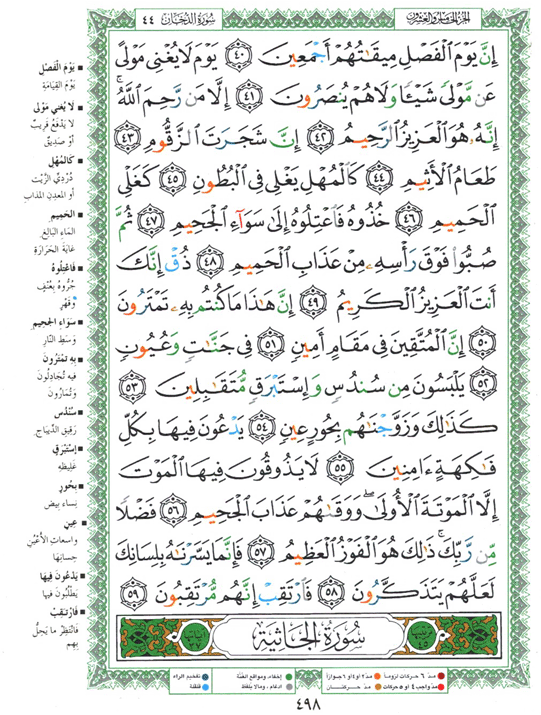 الجزء الخامس والعشرون
سورة الدخان ٤٤
إِنَّ يَوْمَ ٱلْفَصْلِ مِيقَٰتُهُمْ أَجْمَعِينَ ٤٠ يَوْمَ لَا يُغْنِى مَوْلًى
عَن مَّوْلًى شَيْـًٔا وَلَا هُمْ يُنصَرُونَ ٤١ إِلَّا مَن رَّحِمَ ٱللَّهُ ۚ
إِنَّهُۥ هُوَ ٱلْعَزِيزُ ٱلرَّحِيمُ ٤٢ إِنَّ شَجَرَتَ ٱلزَّقُّومِ ٤٣
طَعَامُ ٱلْأَثِيمِ ٤٤ كَٱلْمُهْلِ يَغْلِى فِى ٱلْبُطُونِ ٤٥ كَغَلْىِ
ٱلْحَمِيمِ ٤٦ خُذُوهُ فَٱعْتِلُوهُ إِلَىٰ سَوَآءِ ٱلْجَحِيمِ ٤٧ ثُمَّ
صُبُّوا۟ فَوْقَ رَأْسِهِۦ مِنْ عَذَابِ ٱلْحَمِيمِ ٤٨ ذُقْ إِنَّكَ
أَنتَ ٱلْعَزِيزُ ٱلْكَرِيمُ ٤٩ إِنَّ هَٰذَا مَا كُنتُم بِهِۦ تَمْتَرُونَ
٥٠ إِنَّ ٱلْمُتَّقِينَ فِى مَقَامٍ أَمِينٍ ٥١ فِى جَنَّٰتٍ وَعُيُونٍ
٥٢ يَلْبَسُونَ مِن سُندُسٍ وَإِسْتَبْرَقٍ مُّتَقَٰبِلِينَ ٥٣
كَذَٰلِكَ وَزَوَّجْنَٰهُم بِحُورٍ عِينٍ ٥٤ يَدْعُونَ فِيهَا بِكُلِّ
فَٰكِهَةٍ ءَامِنِينَ ٥٥ لَا يَذُوقُونَ فِيهَا ٱلْمَوْتَ
إِلَّا ٱلْمَوْتَةَ ٱلْأُولَىٰ ۖ وَوَقَىٰهُمْ عَذَابَ ٱلْجَحِيمِ ٥٦ فَضْلًا
مِّن رَّبِّكَ ۚ ذَٰلِكَ هُوَ ٱلْفَوْزُ ٱلْعَظِيمُ ٥٧ فَإِنَّمَا يَسَّرْنَٰهُ بِلِسَانِكَ
لَعَلَّهُمْ يَتَذَكَّرُونَ ٥٨ فَٱرْتَقِبْ إِنَّهُم مُّرْتَقِبُونَ ٥٩
سُورَةُ الجَاثِيَة
يَوْمَ الْفَصْلِ
يَوْمَ القِيَامَةِ
لا يُغْنِي مَوْلى
لا يَدْفَعُ قَرِيبٌ
أوْ صَدِيقٌ
كالمُهْلِ
دُرْدِيِّ الزَّيْتِ
أو المعدِنِ المذاب
الحَمِيمِ
المَاءِ البَالِغِ
غَايَةَ الحَرَارَةِ
فاعْتِلُوهُ
جُرُّوهُ بِعُنْفٍ
وَقَهْرٍ
سَوَاءِ الجَحِيمِ
وَسَطِ النَّارِ
بِهِ تَمْتَرُونَ
فيه تُجَادِلُونَ
وَتُمَارُونَ
سُنْدُسٍ
رَقِيقِ الدِّيبَاجِ
إِسْتَبْرَقٍ
غَلِيظِهِ
بِحُورٍ
نِسَاءٍ بِيض
عِينٍ
واسعاتِ الأعْيُنِ
حِسانِهَا
يَدْعُونَ فِيهَا
يَطْلُبُونَ فيها
فَارْتَقِبْ
فانْتَظِرْ ما يَحِلُّ
بِهِم
مدّ ٦ حركات لزوماً
مدّ ٢ أو ٤ أو ٦ جوازاً
إخفاء، ومواقع الغنّة
تفخيم الراء
مدّ واجب ٤ أو ٥ حركات
مدّ حركتان
إدغام، ومالا يُلفظ
قلقلة
٤٩٨